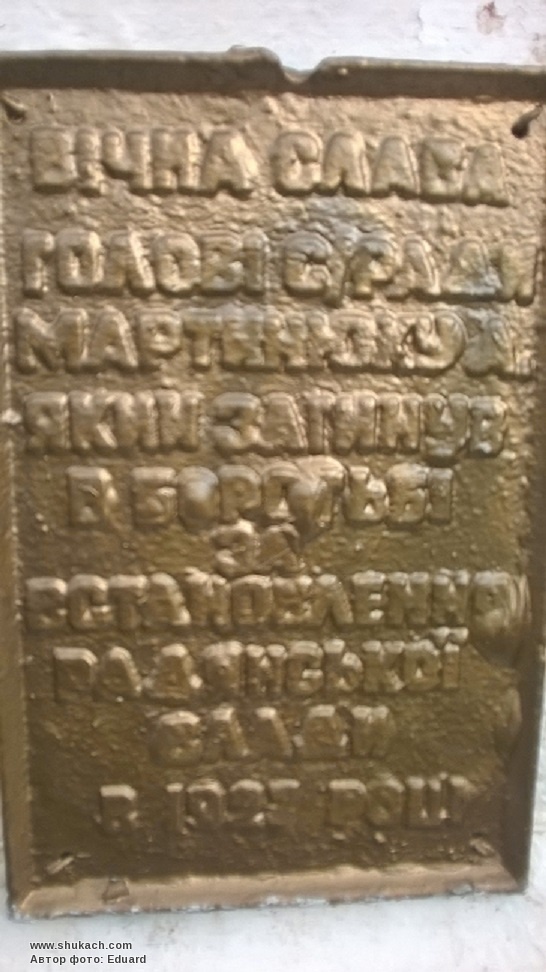 ВІЧНА СЛАВА
ГОЛОВІ С/РАДИ
ЯКИЙ ЗАГИНУВ
В БОРОТЬБІ
ЗА
ВСТАНОВЛЕННЯ
РАДЯНСЬКОЇ
ВЛАДИ
В РОЦІ
www.shukach.com
Автор фото: Eduard